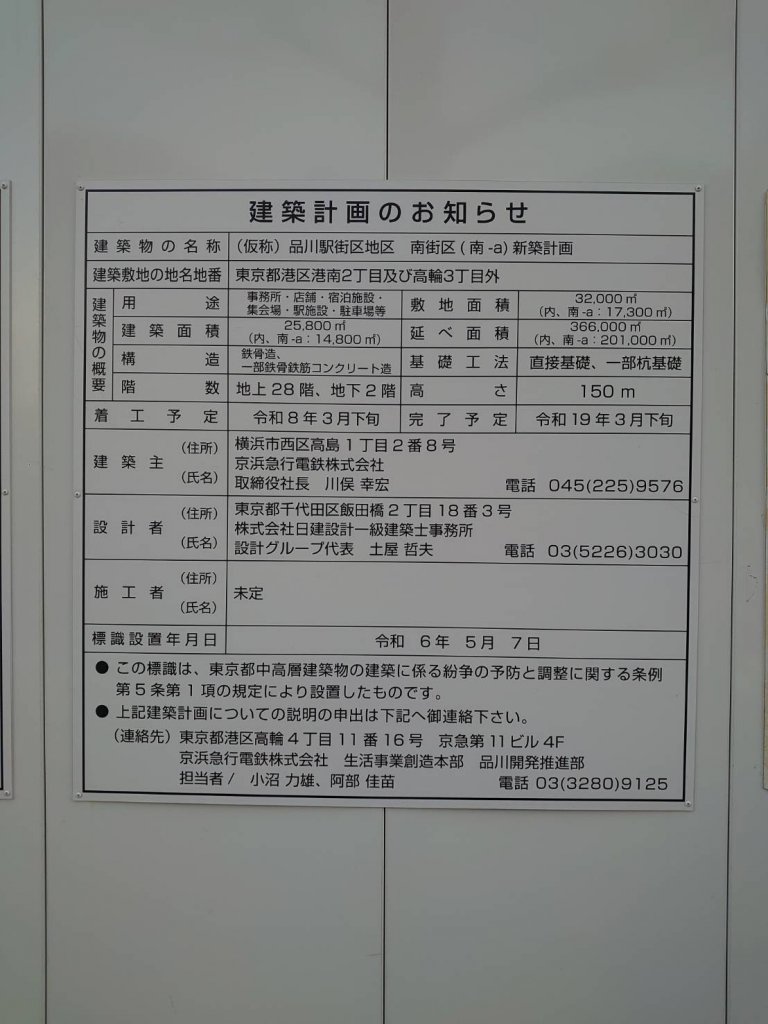 建築計画のお知らせ
建築物の名称 (仮称) 品川駅街区地区 南街区 (南-a) 新築計画
建築敷地の地名地番 東京都港区港南2丁目及び高輪3丁目外
建築物の概要
用途 事務所・店舗・宿泊施設・
集会場・駅施設・駐車場等
敷地面積 32,000㎡
(内、南-a:17,300㎡)
建築面積 25,800㎡
(内、南-a:14,800㎡)
延べ面積 366,000㎡
(内、南-a:201,000㎡)
構造 鉄骨造、
一部鉄骨鉄筋コンクリート造
基礎工法 直接基礎、一部杭基礎
階数 地上28階、地下2階 高さ 150m
着工予定 令和8年3月下旬 完了予定 令和19年3月下旬
建築主 (住所) (氏名)
横浜市西区高島1丁目2番8号
京浜急行電鉄株式会社
取締役社長 川俣 幸宏 電話 045(225)9576
設計者 (住所) (氏名)
東京都千代田区飯田橋2丁目18番3号
株式会社日建設計一級建築士事務所
設計グループ代表 土屋 哲夫 電話 03(5226)3030
施工者 (住所) (氏名)
未定
標識設置年月日 令和 6年 5月 7日
● この標識は、東京都中高層建築物の建築に係る紛争の予防と調整に関する条例
第5条第1項の規定により設置したものです。
● 上記建築計画についての説明の申出は下記へ御連絡下さい。
(連絡先) 東京都港区高輪4丁目11番16号 京急第11ビル4F
京浜急行電鉄株式会社 生活事業創造本部 品川開発推進部
担当者/ 小沼 力雄、阿部 佳苗 電話 03(3280)9125